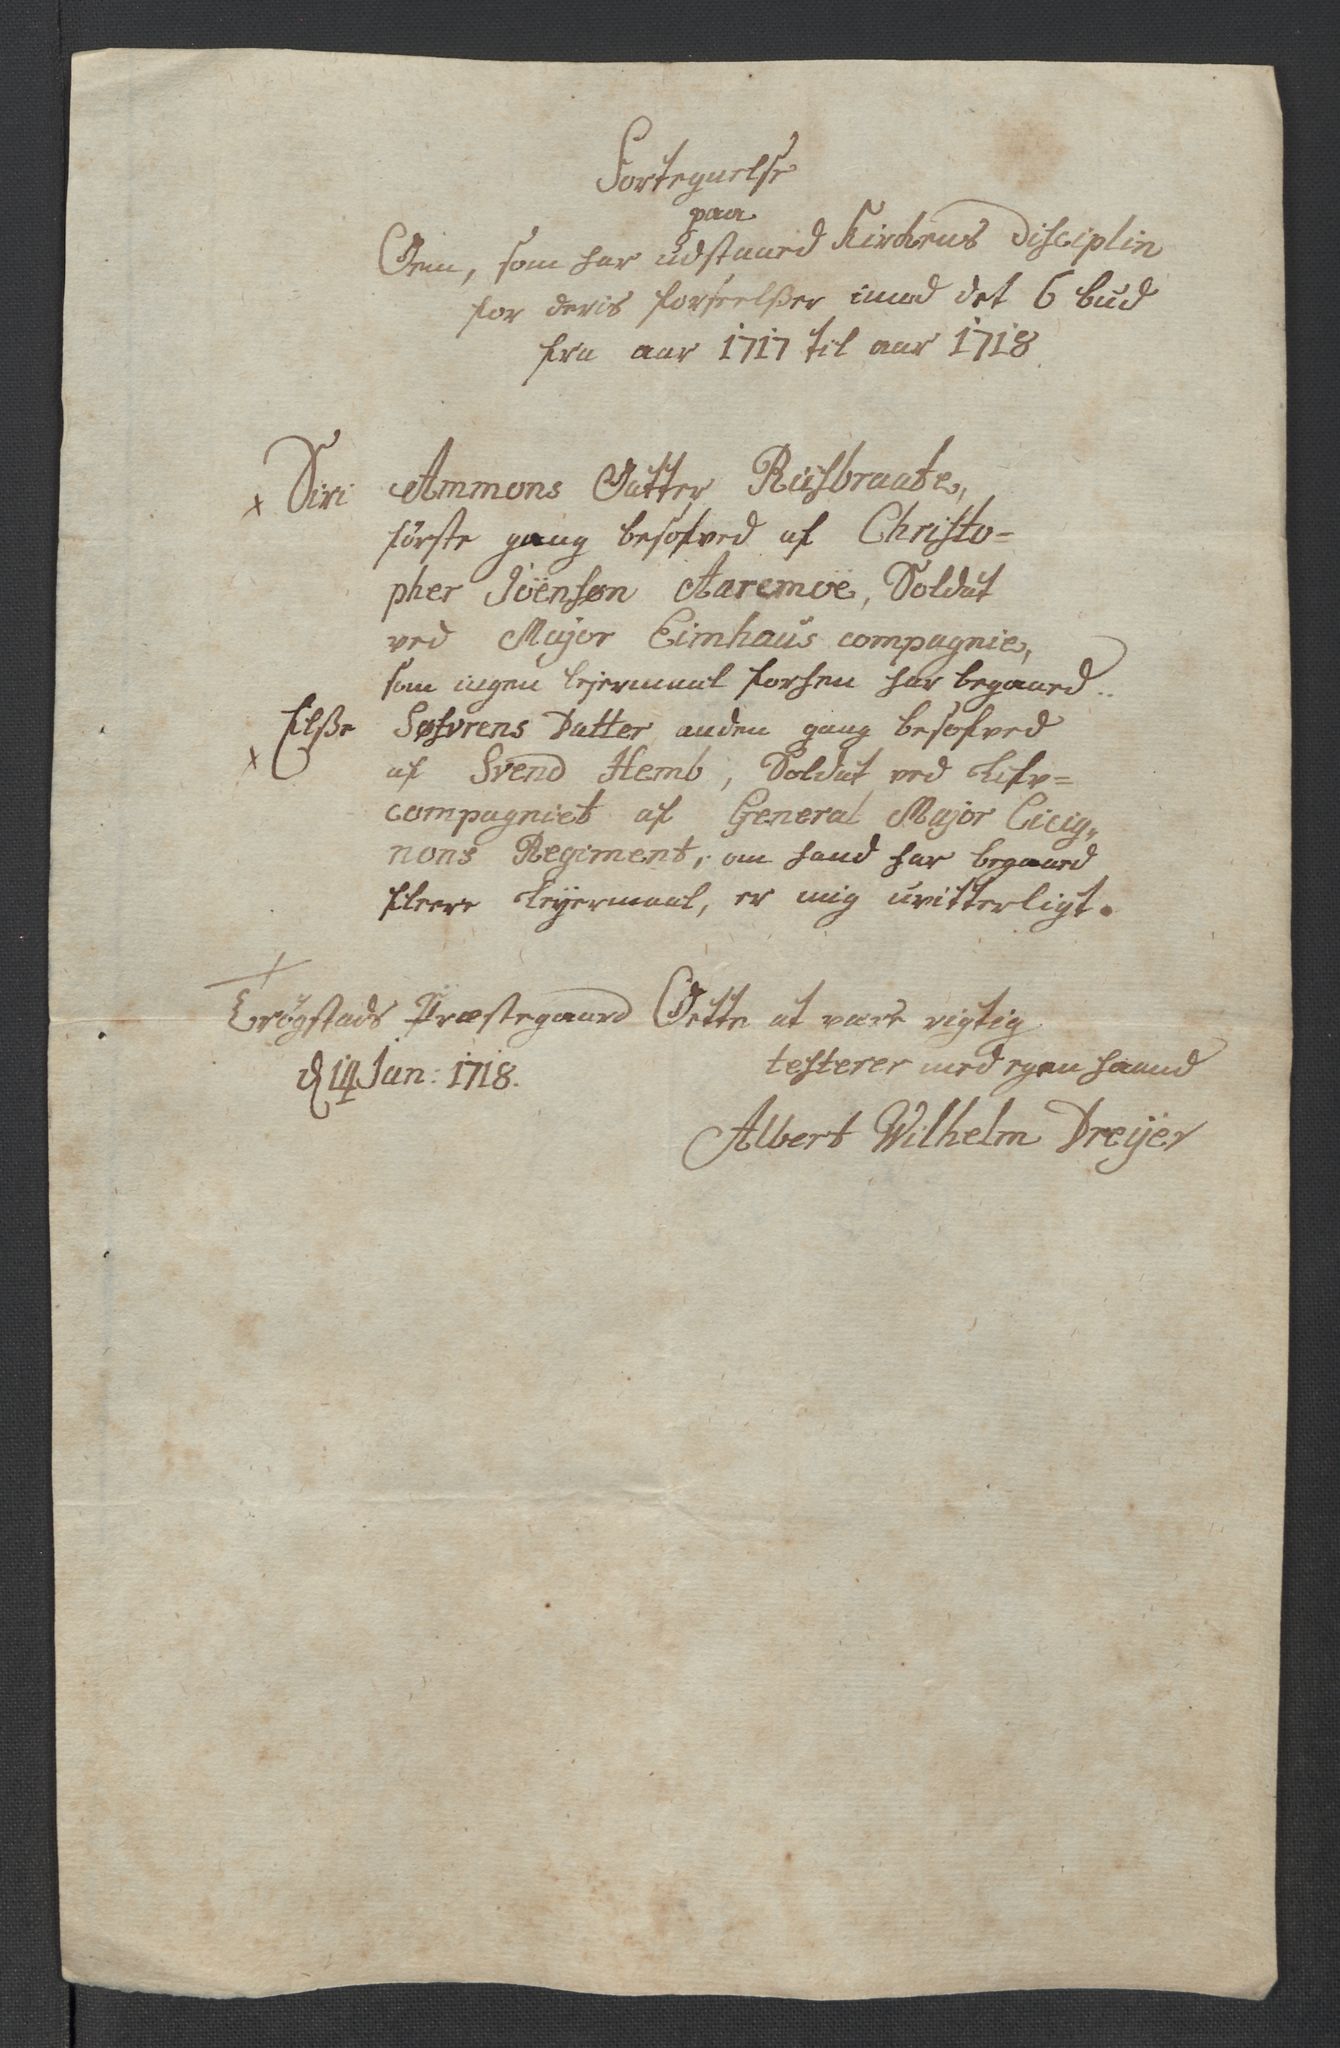 Fortegnelse
paa
Dem, som har udstaaed Kirchens Disciplin
for deris forseelßer imod det 6 bud
fra aar 1717 til aar 1718
x Siri Ammons Datter Riisbraate,
förste gang besofved af Christo=
pher Joënsøn Aaremoe, Soldat
ved Major Eimhaus compagnie,
som ingen lejermaal forhen har begaaed..
x Elße Søfvrens Datter anden gang besofved
af Svend Hemb, Soldat ved Lifv=
compagniet af General Major Cicig=
nons Regiment, om hand har begaaed
fleere Leyermaal, er mig uvitterligt.
Trögstads Præstegaard Dette at være rigtig
d 14 Jan: 1718. testerer med egen haand
Albert Wilhelm Dreÿer